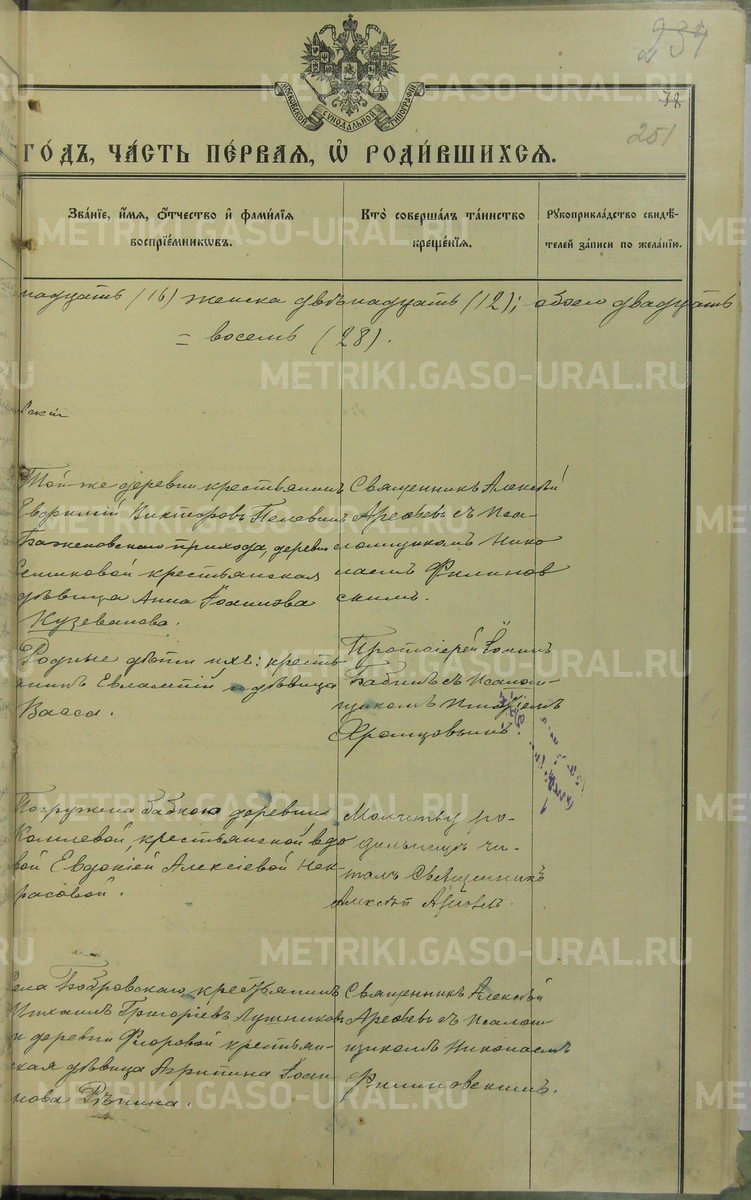 234
МОСКОВСКОЙ СѴНОДАЛЬНОЙ ТИПОГРАФІИ
38
251
ГО́ДЪ, ЧА́СТЬ ПЕ́РВАЯ, Ѡ҆ РОДИ́ВШИХСЯ.
Зва́нїе, и҆́мѧ, ѻ҆́тчество и҆ фами́лїѧ
воспрїе́мникѡвъ.
Кто̀ соверша́лъ та́инство
креще́нїѧ.
Рꙋкоприкла́дство свидѣ́-
телей за́писи по жела́нїю.
надцать (16) женска двѣнадцать (12); обоего двадцать
= восемь (28).
Той-же деревни крестьянинъ
Евфимій Викторовъ Пелевинъ
Баженовскаго прихода, деревни
крестьянская
дѣвица Анна Іоаннова
Кузеванова.
Священникъ Алексѣй
Арефьевъ съ Пса-
ломщикомъ Нико
лаемъ Филинов
скимъ.
Родные дѣти ихъ: кресть
янинъ Евлампій и дѣвица
Васса.
Протоіерей Іоаннъ
Бабинъ съ Псалом-
щикомъ
Храмцовымъ.
Погружена бабкою деревни
крестьянской вдо
вой Евдокіей Алексіевой Нек-
расовой.
Молитву ро-
дильницѣ чи-
талъ Священникъ
Алексѣй Арефьевъ.
Села Бобровскаго крестьянинъ
Михаилъ Григоріевъ Лушниковъ
и деревни Фюровой крестьян-
ская дѣвица Агрипина Іоан-
нова Рѣпина.
Священникъ Алексѣй
Арефьевъ съ Псалом-
щикомъ Николаемъ
Филиновскимъ.
METRIKI.GASO-URAL.RU